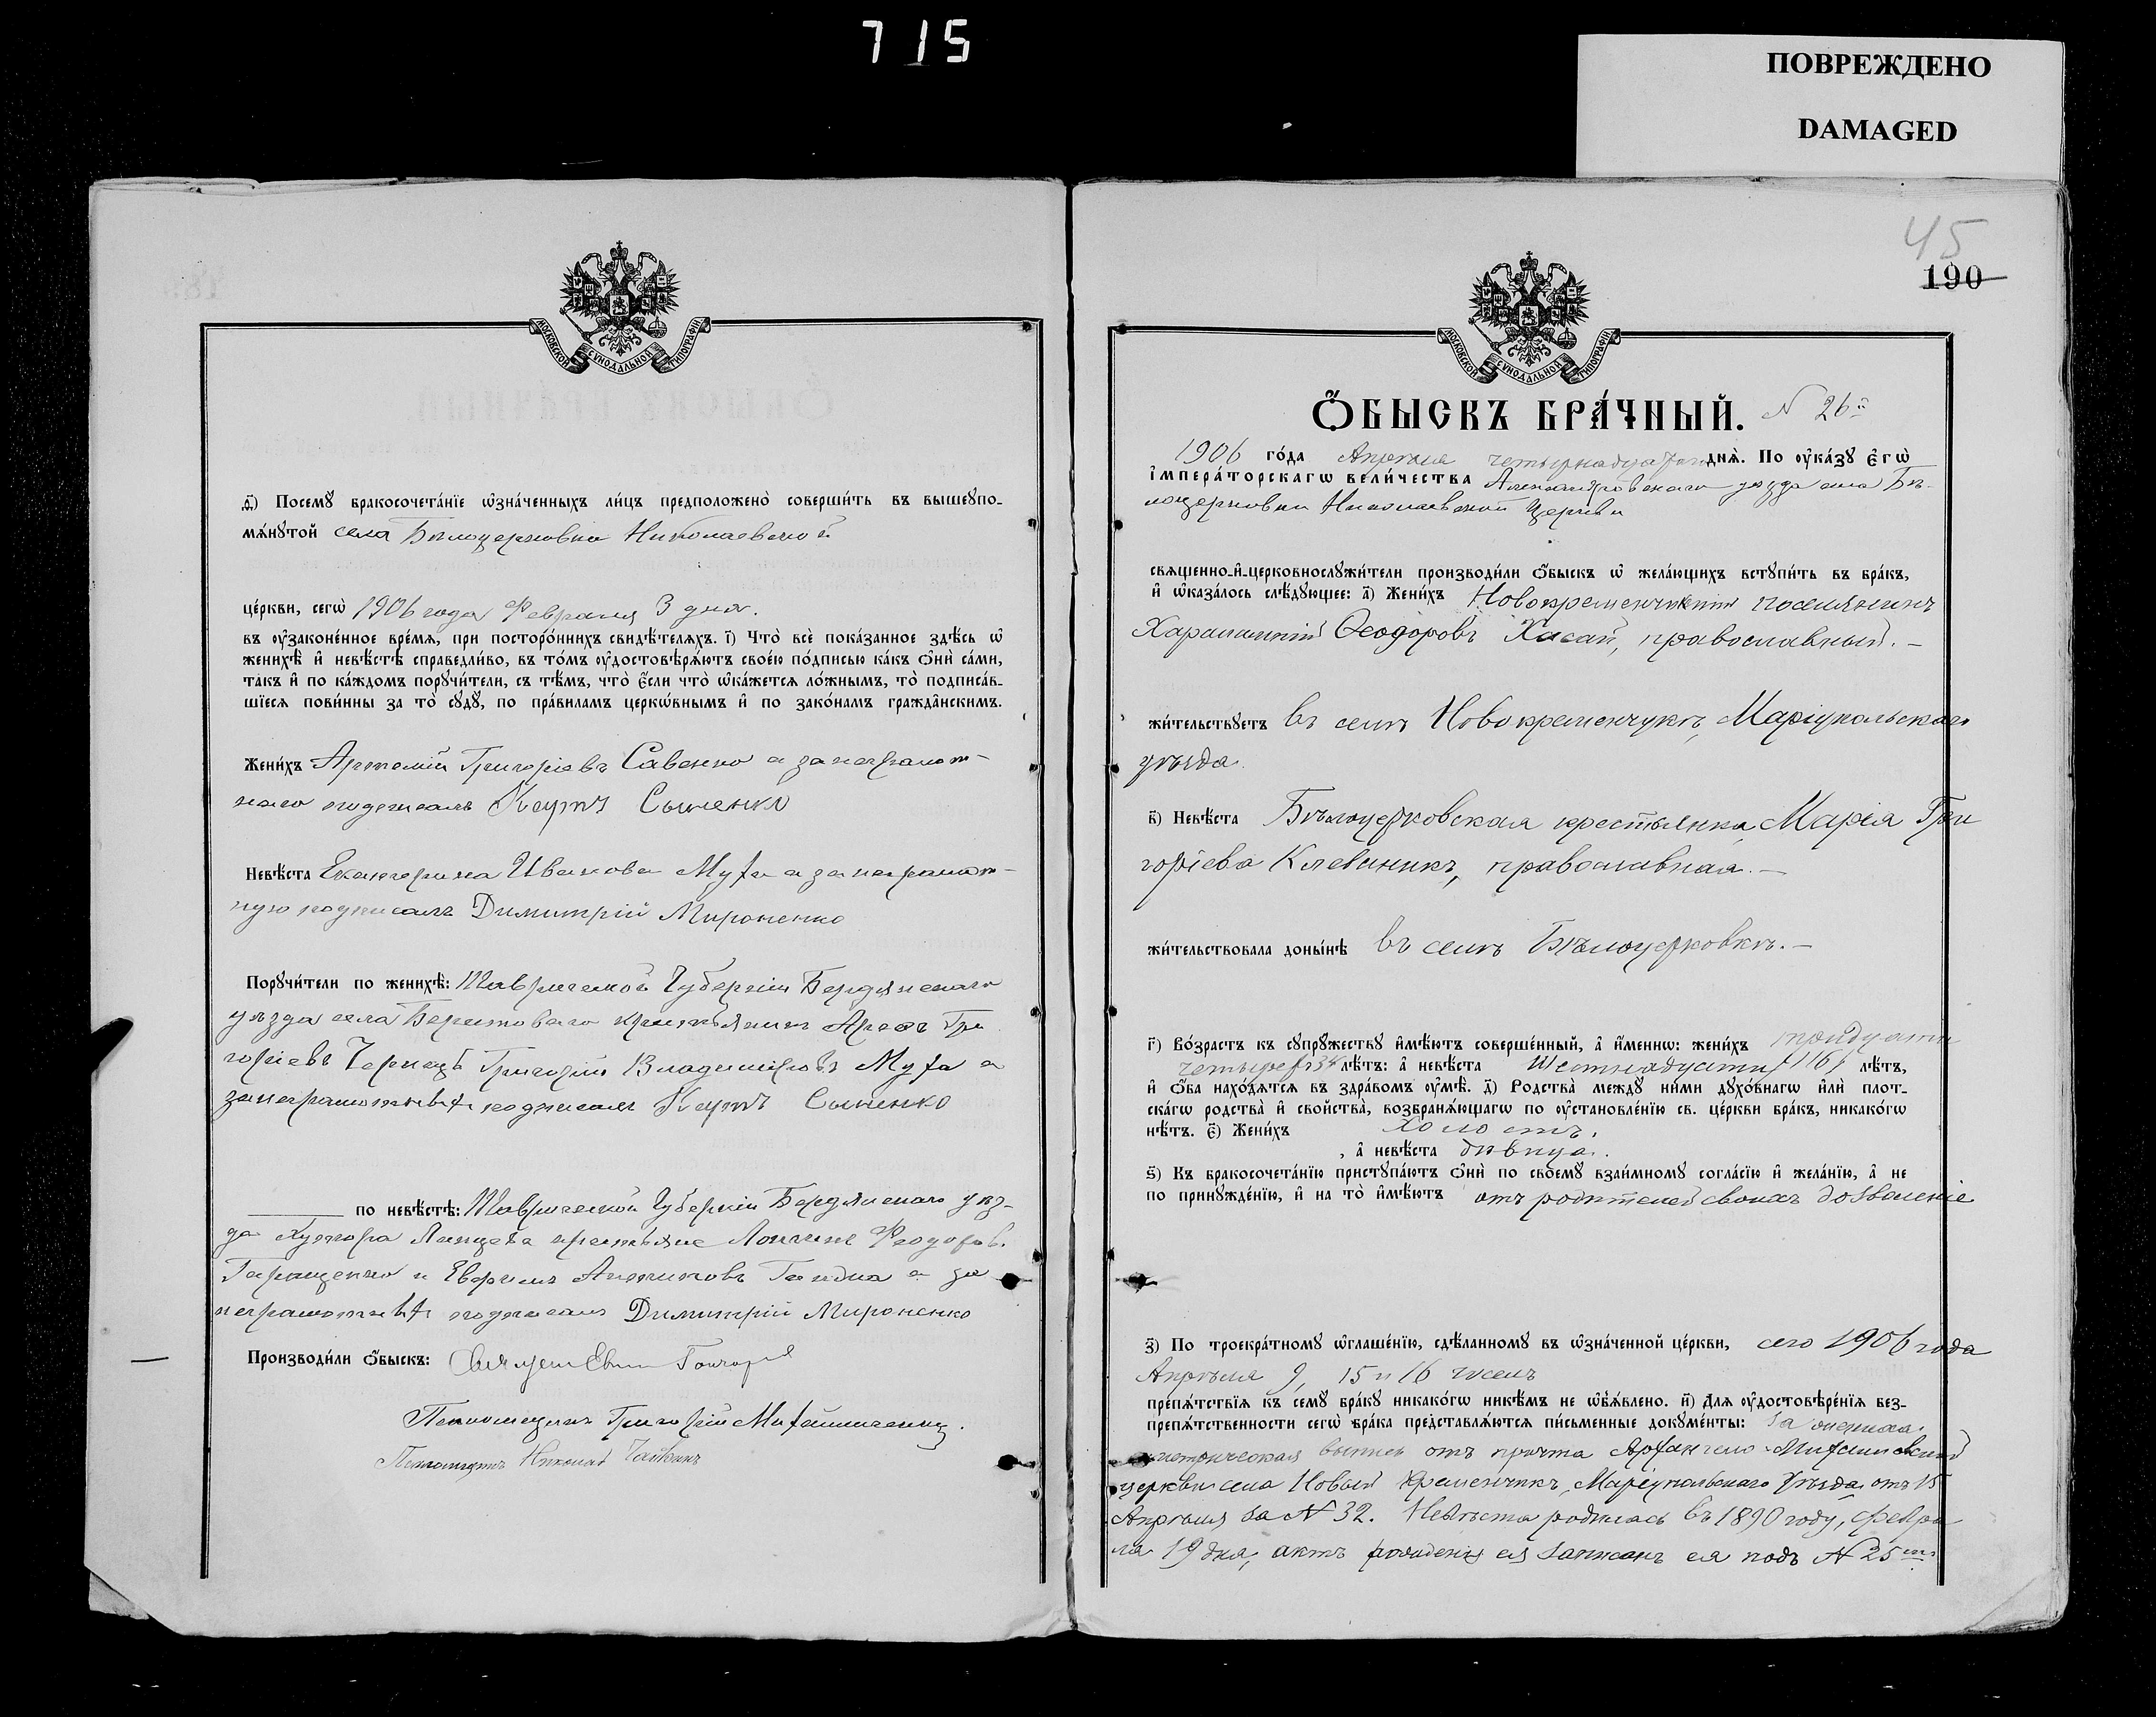 715
ПОВРЕЖДЕНО
DAMAGED
МОСКОВСКОЙ СѴНОДАЛЬНОЙ ТИПОГРАФІИ
ѳ҃) Посемꙋ бракосочета́нїе ѡ҆зна́ченныхъ ли́цъ предположено̀ соверши́ть въ вышеꙋпо-
мѧ́нꙋтой села Бѣлоцерковки Николаевской
це́ркви, сегѡ̀ 1906 года Февраля 3 дня.
въ ᲂу҆зако́не́нное вре́мѧ, при посторо́ннихъ свидѣ́телѧхъ. і҃) Что̀ всѐ пока́занное здѣ́сь ѡ҆
женихѣ̀ и҆ невѣ́стѣ справедли́во, въ то́мъ ᲂу҆достовѣрѧ́ютъ свое́ю по́дписью ка́къ ѻ҆нѝ са́ми,
та́къ и҆ по ка́ждомъ порꙋчи́тели, съ тѣ́мъ, что̀ є҆́сли что̀ ѡ҆ка́жетсѧ ло́жнымъ, то̀ подписа́в-
шїесѧ пови́нны за то̀ сꙋдꙋ̀, по пра́виламъ церко́внымъ и҆ по зако́намъ гражда̂нскимъ.
Жени́хъ Артемій Григоріевъ Савенко а за неграмот-
наго подписалъ Сыченко
Невѣ́ста Екатерина Иванова Муха а за неграмот-
ную подписалъ Димитрій Мироненко
Порꙋчи́тели по женихѣ̀: Таврической Губерніи Бердянскаго
уѣзда села Берестоваго Гри
горіевъ Григорій Владиміровъ Муха а
за неграмотныхъ подписалъ Сыченко
по невѣ́стѣ: Таврической Губерніи Бердянскаго уѣз-
да Хутора крестьяне Логгинъ Феодоров.
Гаращенко и а за
неграмотныхъ подписалъ Димитрій Мироненко
Производи́ли ѻ҆́быскъ: Священ Гончаров
Псаломщикъ Григорій
Псаломщикъ Николай
45
190
МОСКОВСКОЙ СѴНОДАЛЬНОЙ ТИПОГРАФІИ
Ѻ҆́БЫСКЪ БРА́ЧНЫЙ. N 26й
1906 го́да Апрѣля четырнадцатаго днѧ̀. По ᲂу҆ка́зꙋ є҆гѡ̀
і҆мпера́торскагѡ вели́чества Александровскаго уѣзда села Бѣ-
лоцерковки Николаевской Церкви
свѧщенно-и҆-церковнослꙋжи́тели производи́ли ѻ҆́быскъ ѡ҆ жела́ющихъ встꙋпи́ть въ бра́къ,
и҆ ѡ҆каза́лось слѣ́дꙋющее: а҃) Жени́хъ Новокременчикскій поселянинъ
Харлампій Ѳеодоровъ Хасай, православный. –
жи́тельствꙋетъ въ селѣ Новокременчукѣ, Маріупольскаго
уѣзда.
в҃) Невѣ́ста Бѣлоцерковская крестьянка, Марія Гри
горіева Клевиникъ, православная. –
жи́тельствовала доны́нѣ въ селѣ Бѣлоцерковкѣ. –
г҃) Во́зрастъ къ сꙋпрꙋ́жествꙋ и҆мѣ́ютъ соверше́нный, а҆ и҆́меннѡ: жени́хъ тридцати
четырех 34 лѣ́тъ: а҆ невѣ́ста шестнадцати 16 лѣ́тъ,
и҆ ѻ҆́ба нахо́дѧтсѧ въ здра́вомъ ᲂу҆мѣ̀. д҃) Родства̀ междꙋ̀ ни́ми дꙋхо́внагѡ и҆лѝ плот-
ска́гѡ родства̀ и҆ сво́йства, возбранѧ́ющагѡ по ᲂу҆становле́нїю св. це́ркви бра́къ, никако́гѡ
нѣ́тъ. є҃) Жени́хъ холостъ.
, а҆ невѣ́ста дѣвица.
ѕ҃) Къ бракосочета́нїю пристꙋпа́ютъ ѻ҆нѝ по своемꙋ̀ взаи́мномꙋ согла́сїю и҆ жела́нїю, а҆ не
по принꙋжде́нїю, и҆ на то̀ и҆мѣ́ютъ отъ родителей своихъ дозволеніе
з҃) По троекра́тномꙋ ѡ҆глаше́нїю, сдѣ́ланномꙋ въ ѡ҆зна́ченной це́ркви, сего 1906 года
Апрѣля 9, 15 и 16 чиселъ
препѧ́тствїѧ къ семꙋ̀ бра́кꙋ никако́гѡ никѣ́мъ не ѡ҆б̾ѧ́влено. и҃) Длѧ ᲂу҆достовѣре́нїѧ без-
препѧ́тственности сегѡ̀ бра́ка представлѧ́ютсѧ пи́сьменные докꙋме́нты: За жениха
метрическая выпись отъ причта Архангело-Михайловской
церкви села Новый Кременчикъ, Маріупольскаго уѣзда отъ 15
Апрѣля за № 32. Невѣста родилась въ 1890 году, Февра
ля 19 дня, актъ рожденія ея записанъ подъ № 25